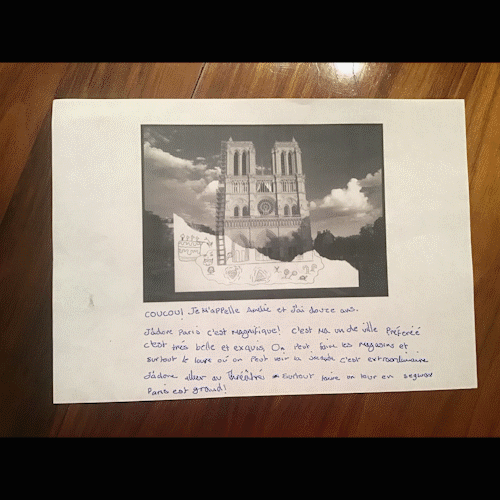 COUCOU! Je M'appelle Amelie et J'ai douze ans.
J'adore Paris c'est Magnifique! c'est Ma ville Préfereé
c'est trés belle et exquis, On Peut faire les Magasins et
surtout le louvre où on Peut voir la c'est extraordinaire
J'adore aller au surtout faire un tour en segway
Paris est grand!